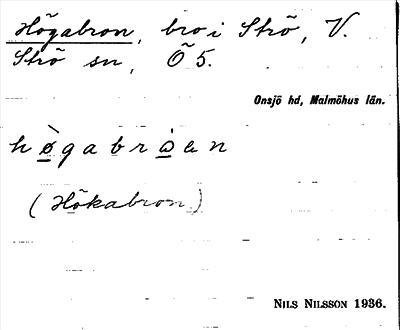 Högabron, bro i Strö, V.
Strö sn, Ö 5.
Onsjö hd, Malmöhus län.
hø̀gabrɔ́en
(Hökabron)
NILS NILSSON 1936.